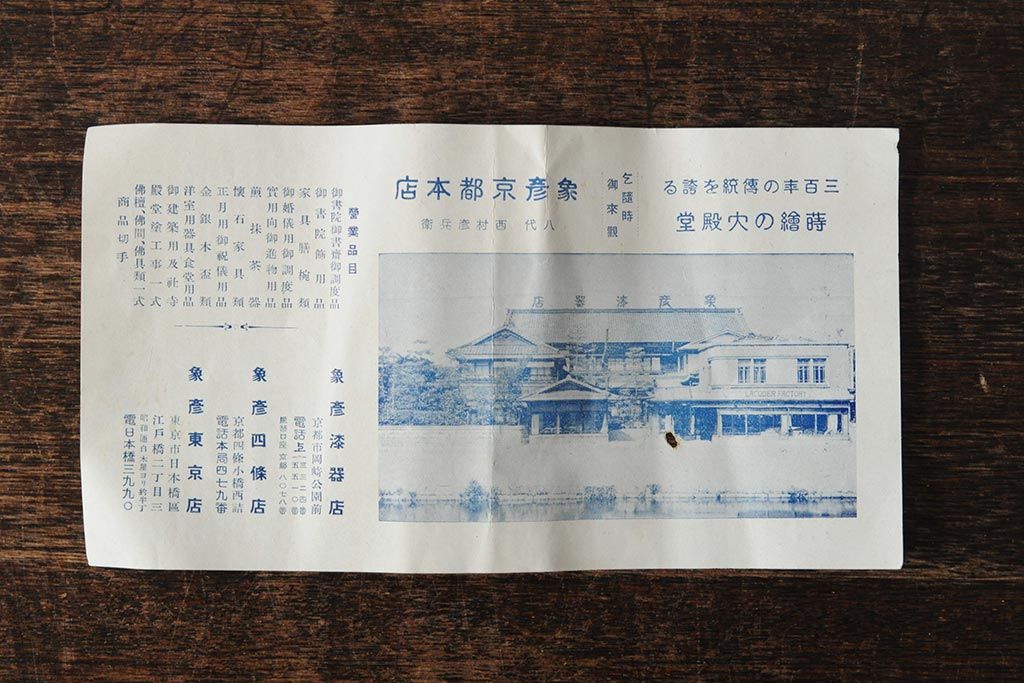 三百年の傳統を誇る
蒔繪の大殿堂
乞隨時
御來觀
象彦京都本店
八代 西村彦兵衛
象彦漆器店
LACQUER FACTORY
營業品目
御書院御書齋御調度品
御書院飾用品
家具膳椀類
御婚儀用御調度品
實用向御進物用品
煎抹茶器
懷石家具類
正月用御祝儀用品
金銀木盃類
洋室用器具食堂用品
御建築用及社寺
殿堂塗工事一式
佛壇、佛間、佛具類一式
商品切手
象彦漆器店
京都市岡崎公園前
象彦四條店
京都四條小橋西詰
電話本局四七九番
象彦東京店
東京市日本橋區
江戸橋二丁目三
昭和通白木屋ヨリ約半丁
電日本橋三九九〇